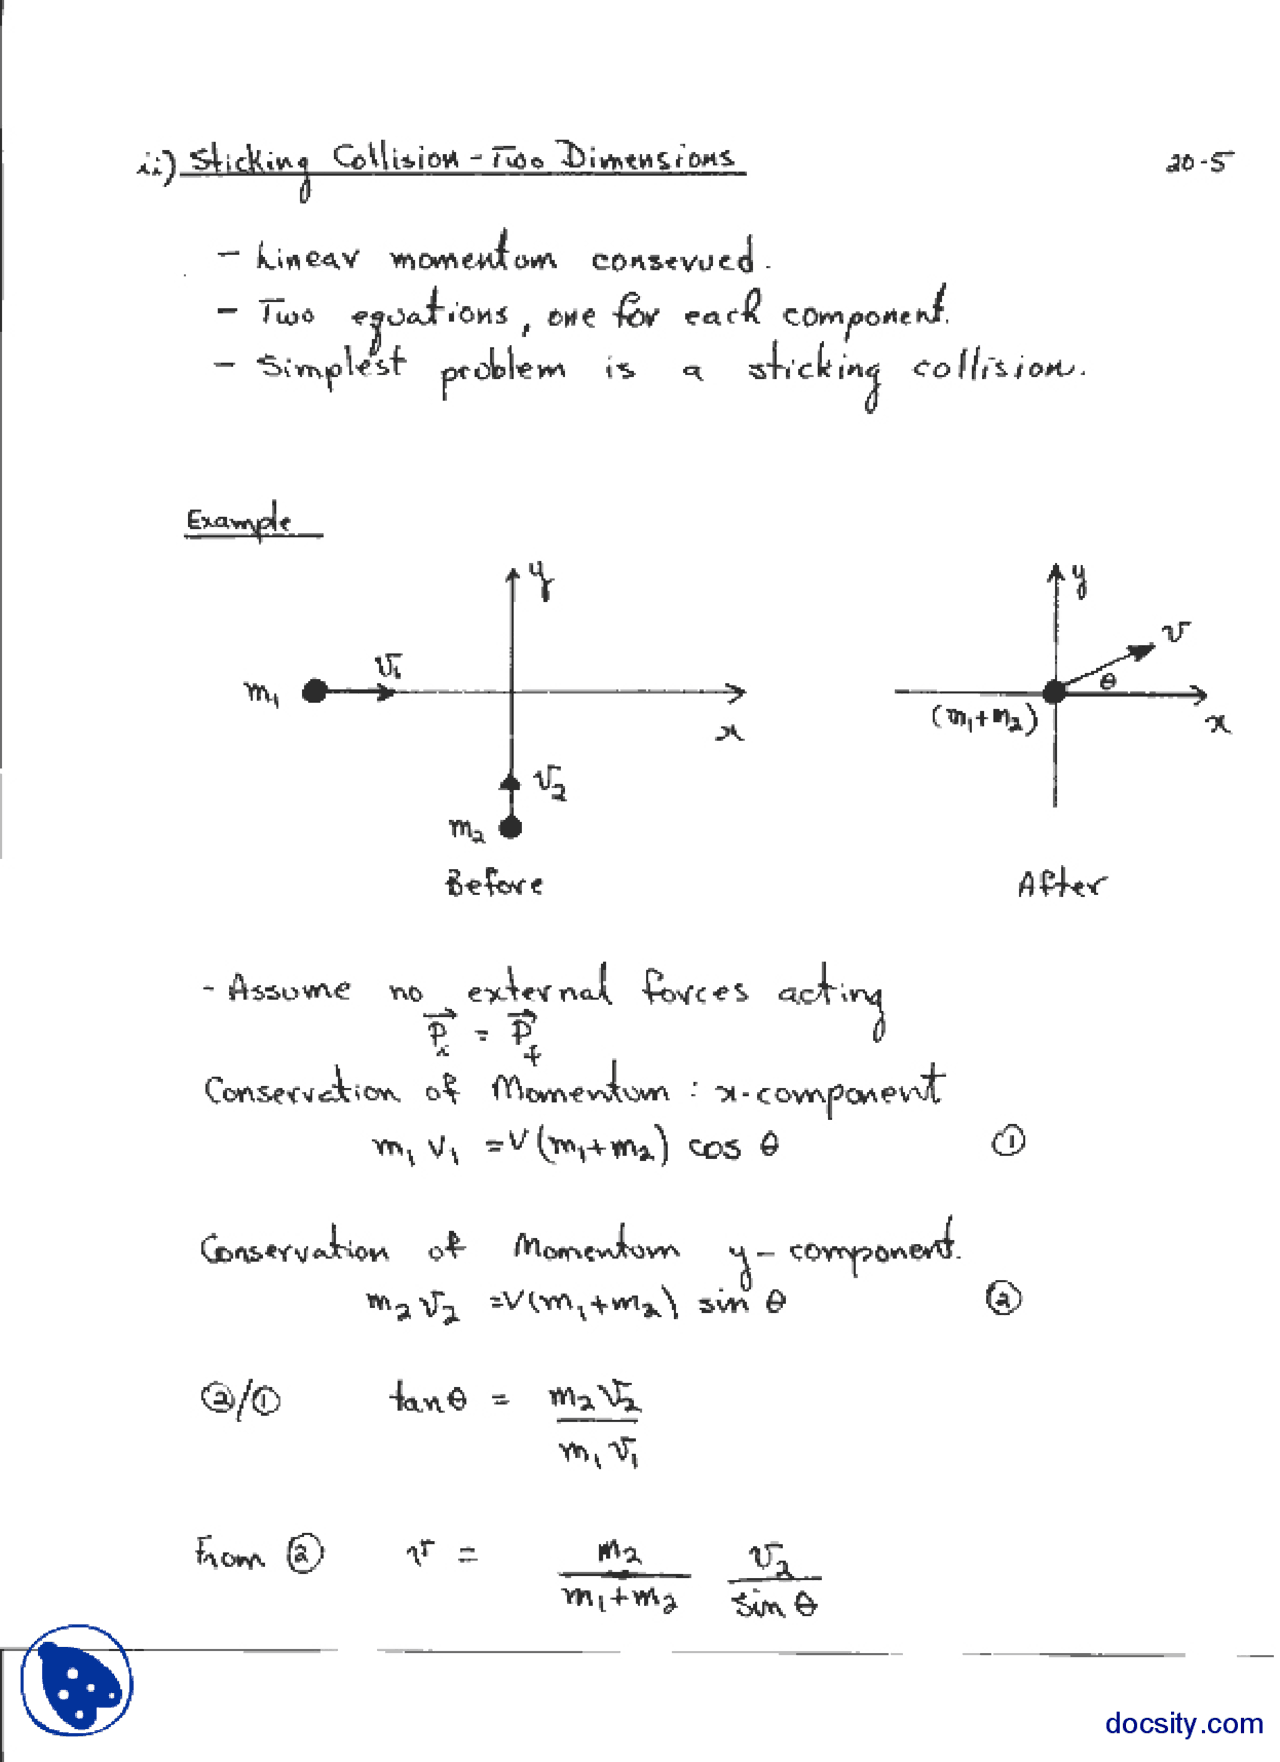 ii) Sticking Collision - Two Dimensions
20-5
- Linear momentum conserved.
- Two equations, one for each component.
- Simplest problem is a sticking collision.
Example
y
y
v
v₁
m₁
θ
(m₁+m₂)
x
x
v₂
m₂
Before
After
- Assume no external forces acting
P⃗ᵢ = P⃗f
Conservation of Momentum : x-component
m₁ v₁ = V(m₁+m₂) cos θ ①
Conservation of Momentum y-component.
m₂ v₂ = V(m₁+m₂) sin θ ②
②/① tan θ = m₂ v₂
m₁ v₁
From ② v = m₂ v₂
m₁+m₂ sin θ
docsity.com